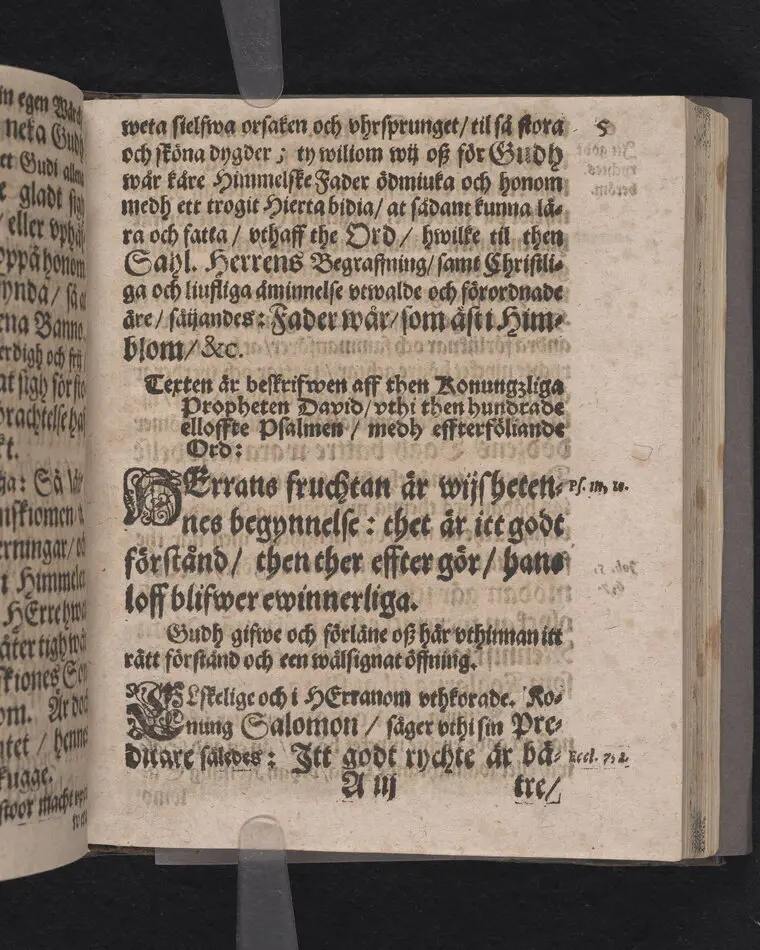 weta sielfwa orsaken och vhrsprunget/ til så stora
5
och sköna dygder ; ty wiliom wij oß för Gudh
wår käre Himmelske Fader ödmiuka och honom
medh ett trogit Hierta bidia/ at sådant kunna lä-
ra och fatta / vthaff the Ord/ hwilke til then
Sahl. Herrens Begrafning/ samt Christli-
ga och liufliga åminnelse vtwalde och förordnade
äre/ såijandes: Fader wår/ som äst i Him-
blom/ &c.
Texten är beskrifwen aff then Konungzliga
Propheten David/ vthi then hundrade
elloffte Psalmen / medh effterföliande
Ord:
HErrans fruchtan är wijsheten-
nes begynnelse: thet är itt godt
förstånd/ then ther effter gör/ hans
loff blifwer ewinnerliga.
Ps. 111, 10.
Gudh gifwe och förläne oß här vthinnan itt
rätt förstånd och een wälsignat öffning.
ELskelige och i HErranom vthkorade. Ko-
nung Salomon / säger vthi sin Pre-
dikare således: Itt godt rychte är bä-
Eccl. 7, 2.
A iij
tre/
in egen
neka Gudh
ett Gudi
gladt
/ eller
honom
ena Banno
erdigh och
at sigh för
t.
ga: Så
erningar/
i Himmelen
HErre
om. Är
/ henne
stoor macht